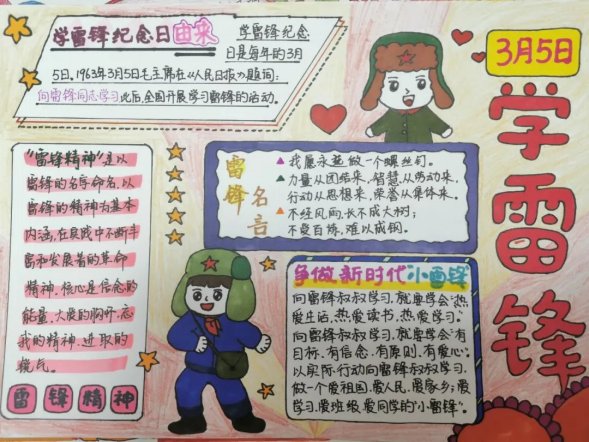 学雷锋纪念日由来
学雷锋纪念
日是每年的3月
5日,1963年3月5日毛主席在《人民日报》题词:
向雷锋同志学习此后,全国开展学习雷锋的活动。
3月5日
学雷锋
"雷锋精神"是以
雷锋的名字命名,以
雷锋的精神为基本
内涵,在实践中不断丰
富和发展着的革命
精神,核心是信念的
能量、大爱的胸怀、忘
我的精神、进取的
锐气。
雷锋精神
雷锋名言
我愿永远做一个螺丝钉。
力量从团结来,智慧从劳动来,
行动从思想来,荣誉从集体来。
不经风雨,长不成大树;
不受百炼,难以成钢。
争做新时代"小雷锋"
向雷锋叔叔学习,就要学会"热
爱生活,热爱读书,热爱学习。"
向雷锋叔叔学习,就要学会"有
目标,有信念,有原则,有爱心。"
以实际行动向雷锋叔叔学习,
做一个爱祖国,爱人民,爱家乡;爱
学习,爱班级,爱同学的"小雷锋"。